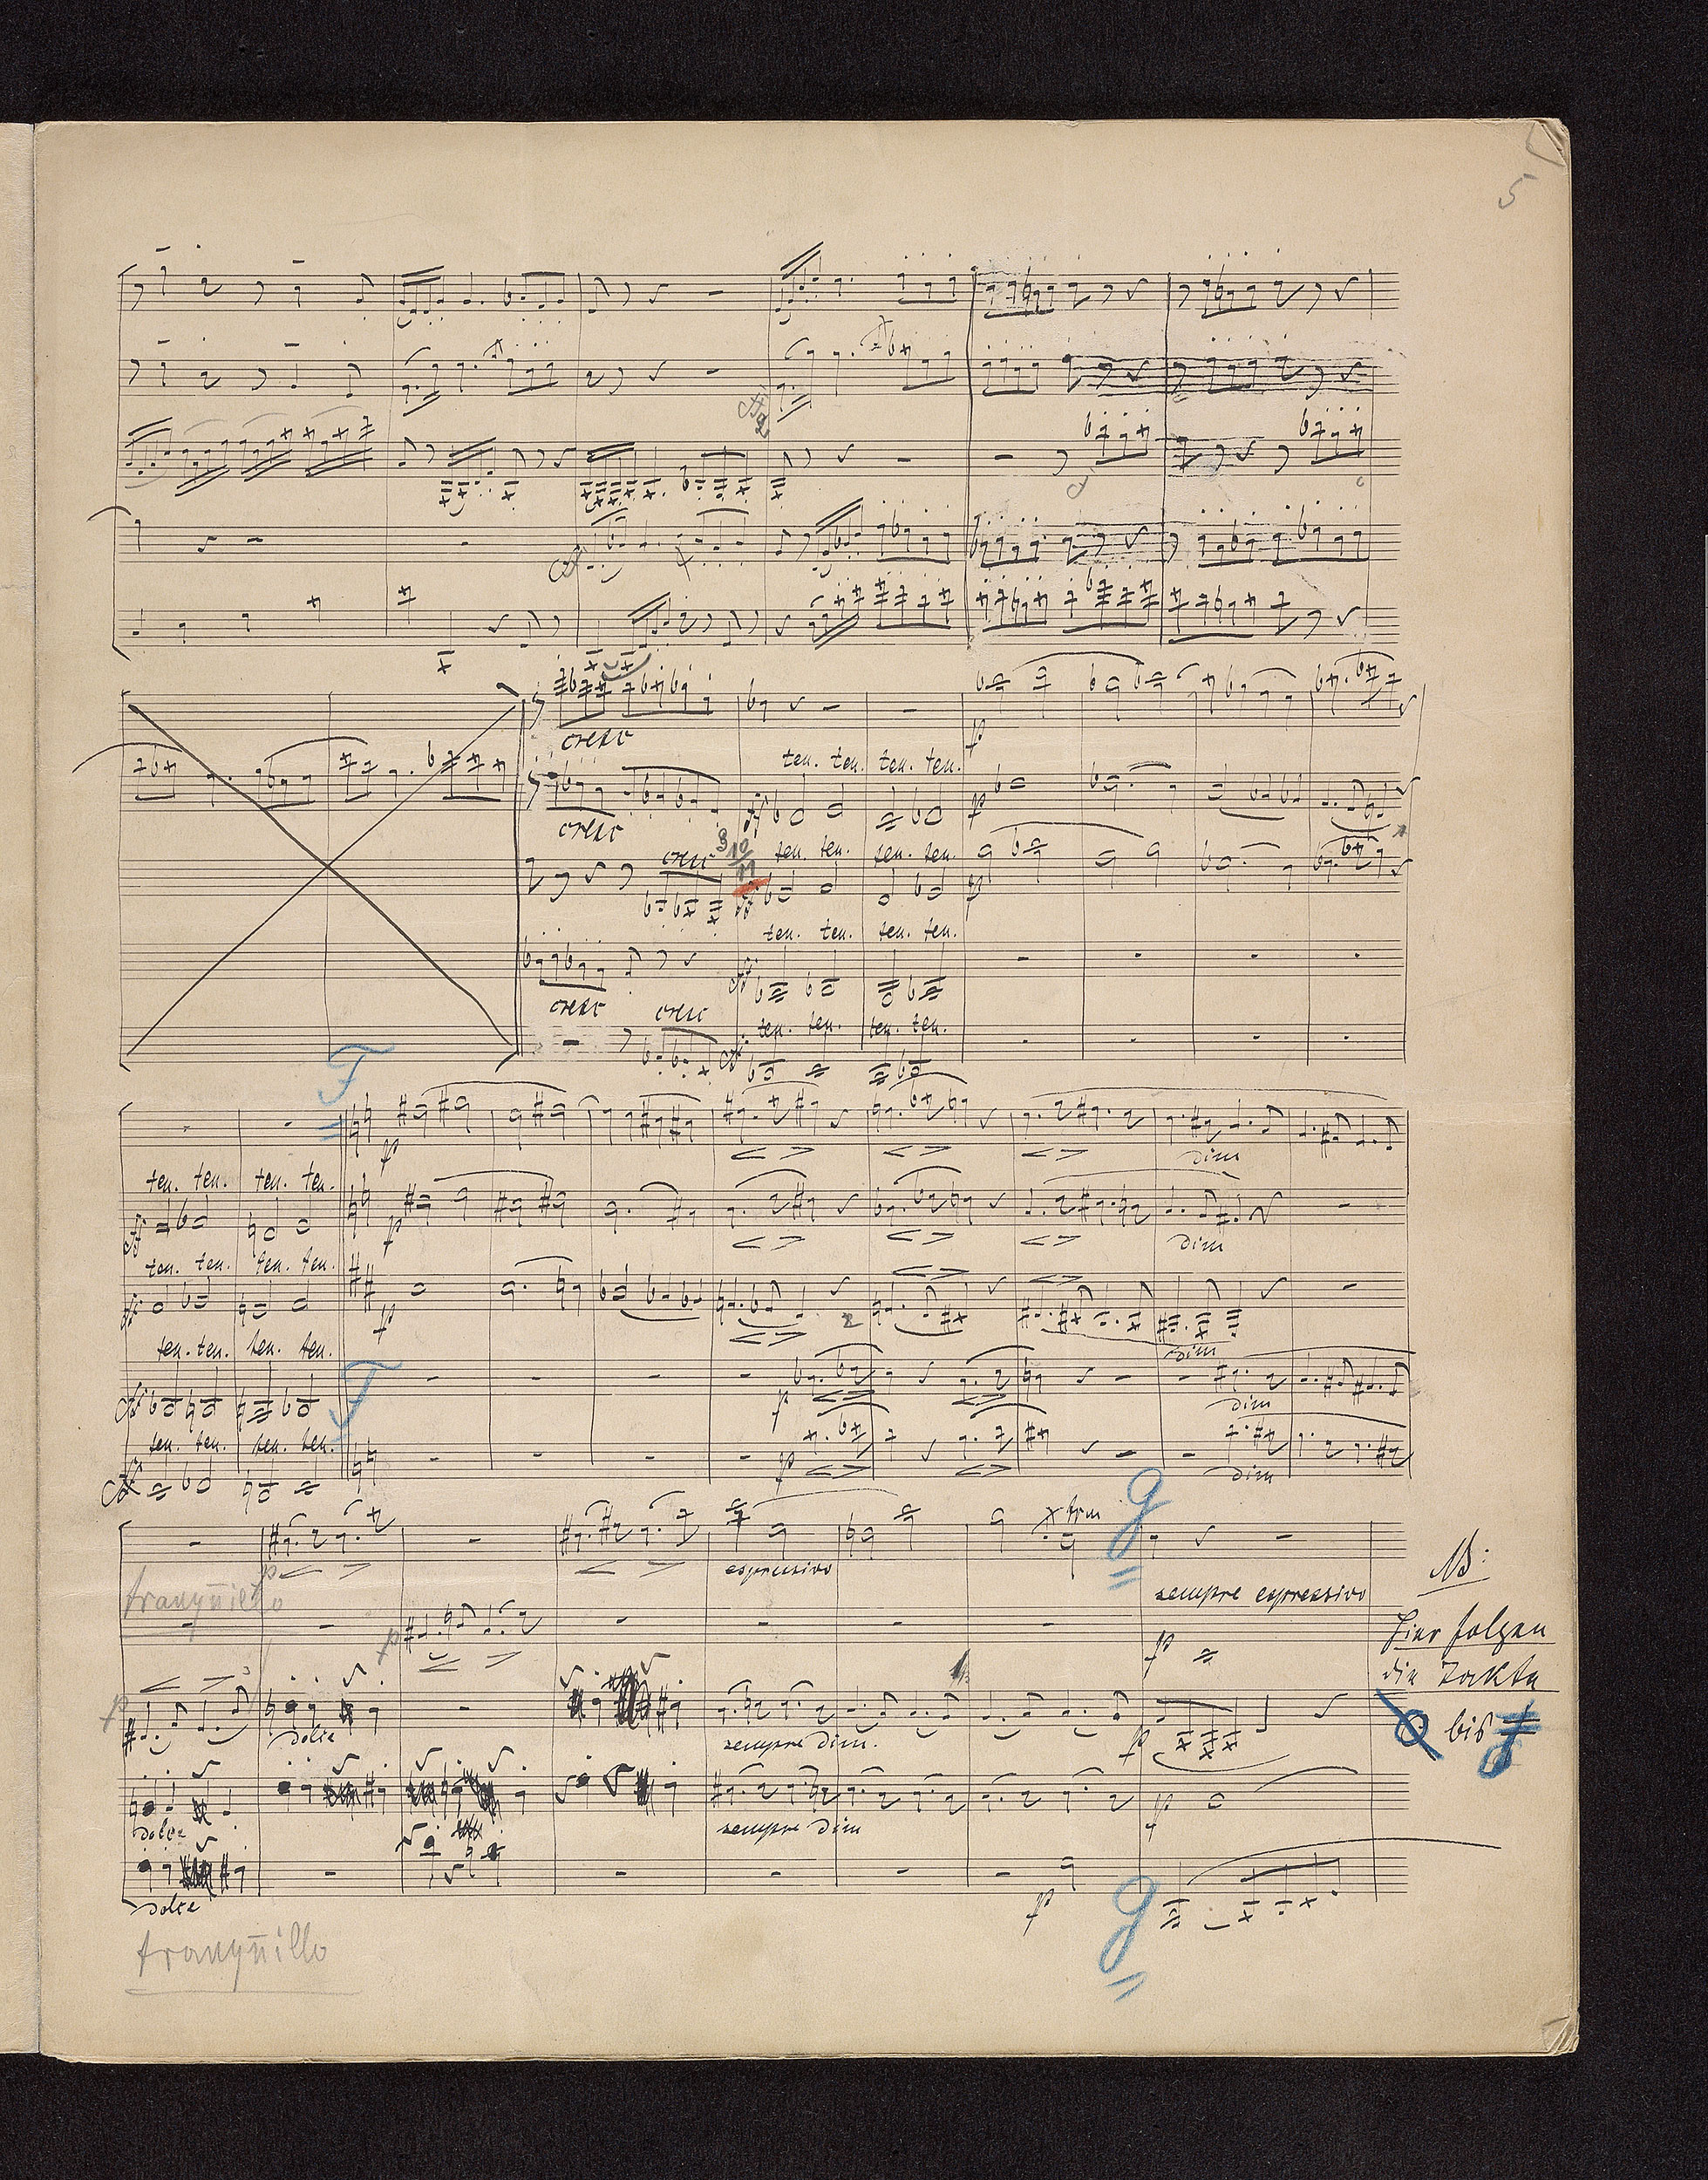 5
cresc
ten. ten. ten. ten.
p
cresc
ff
p
cresc
3
10
11
ten. ten. ten. ten.
ff
p
ten. ten. ten. ten.
ff
cresc
cresc
ten. ten. ten. ten.
ff
F
p
dim
ten. ten. ten. ten.
ff
p
dim
ten. ten. ten. ten.
ff
p
2
dim
ten. ten. ten. ten.
F
ff
p
dim
ten. ten. ten. ten.
ff
p
dim
g
p
espressivo
trm
NB:
tranquillo
sempre expressivo
p
p
Hier folgen
die Takte
p
dolce
sempre dim.
p
bis
dolce
sempre dim
p
dolce
p
g
tranquillo